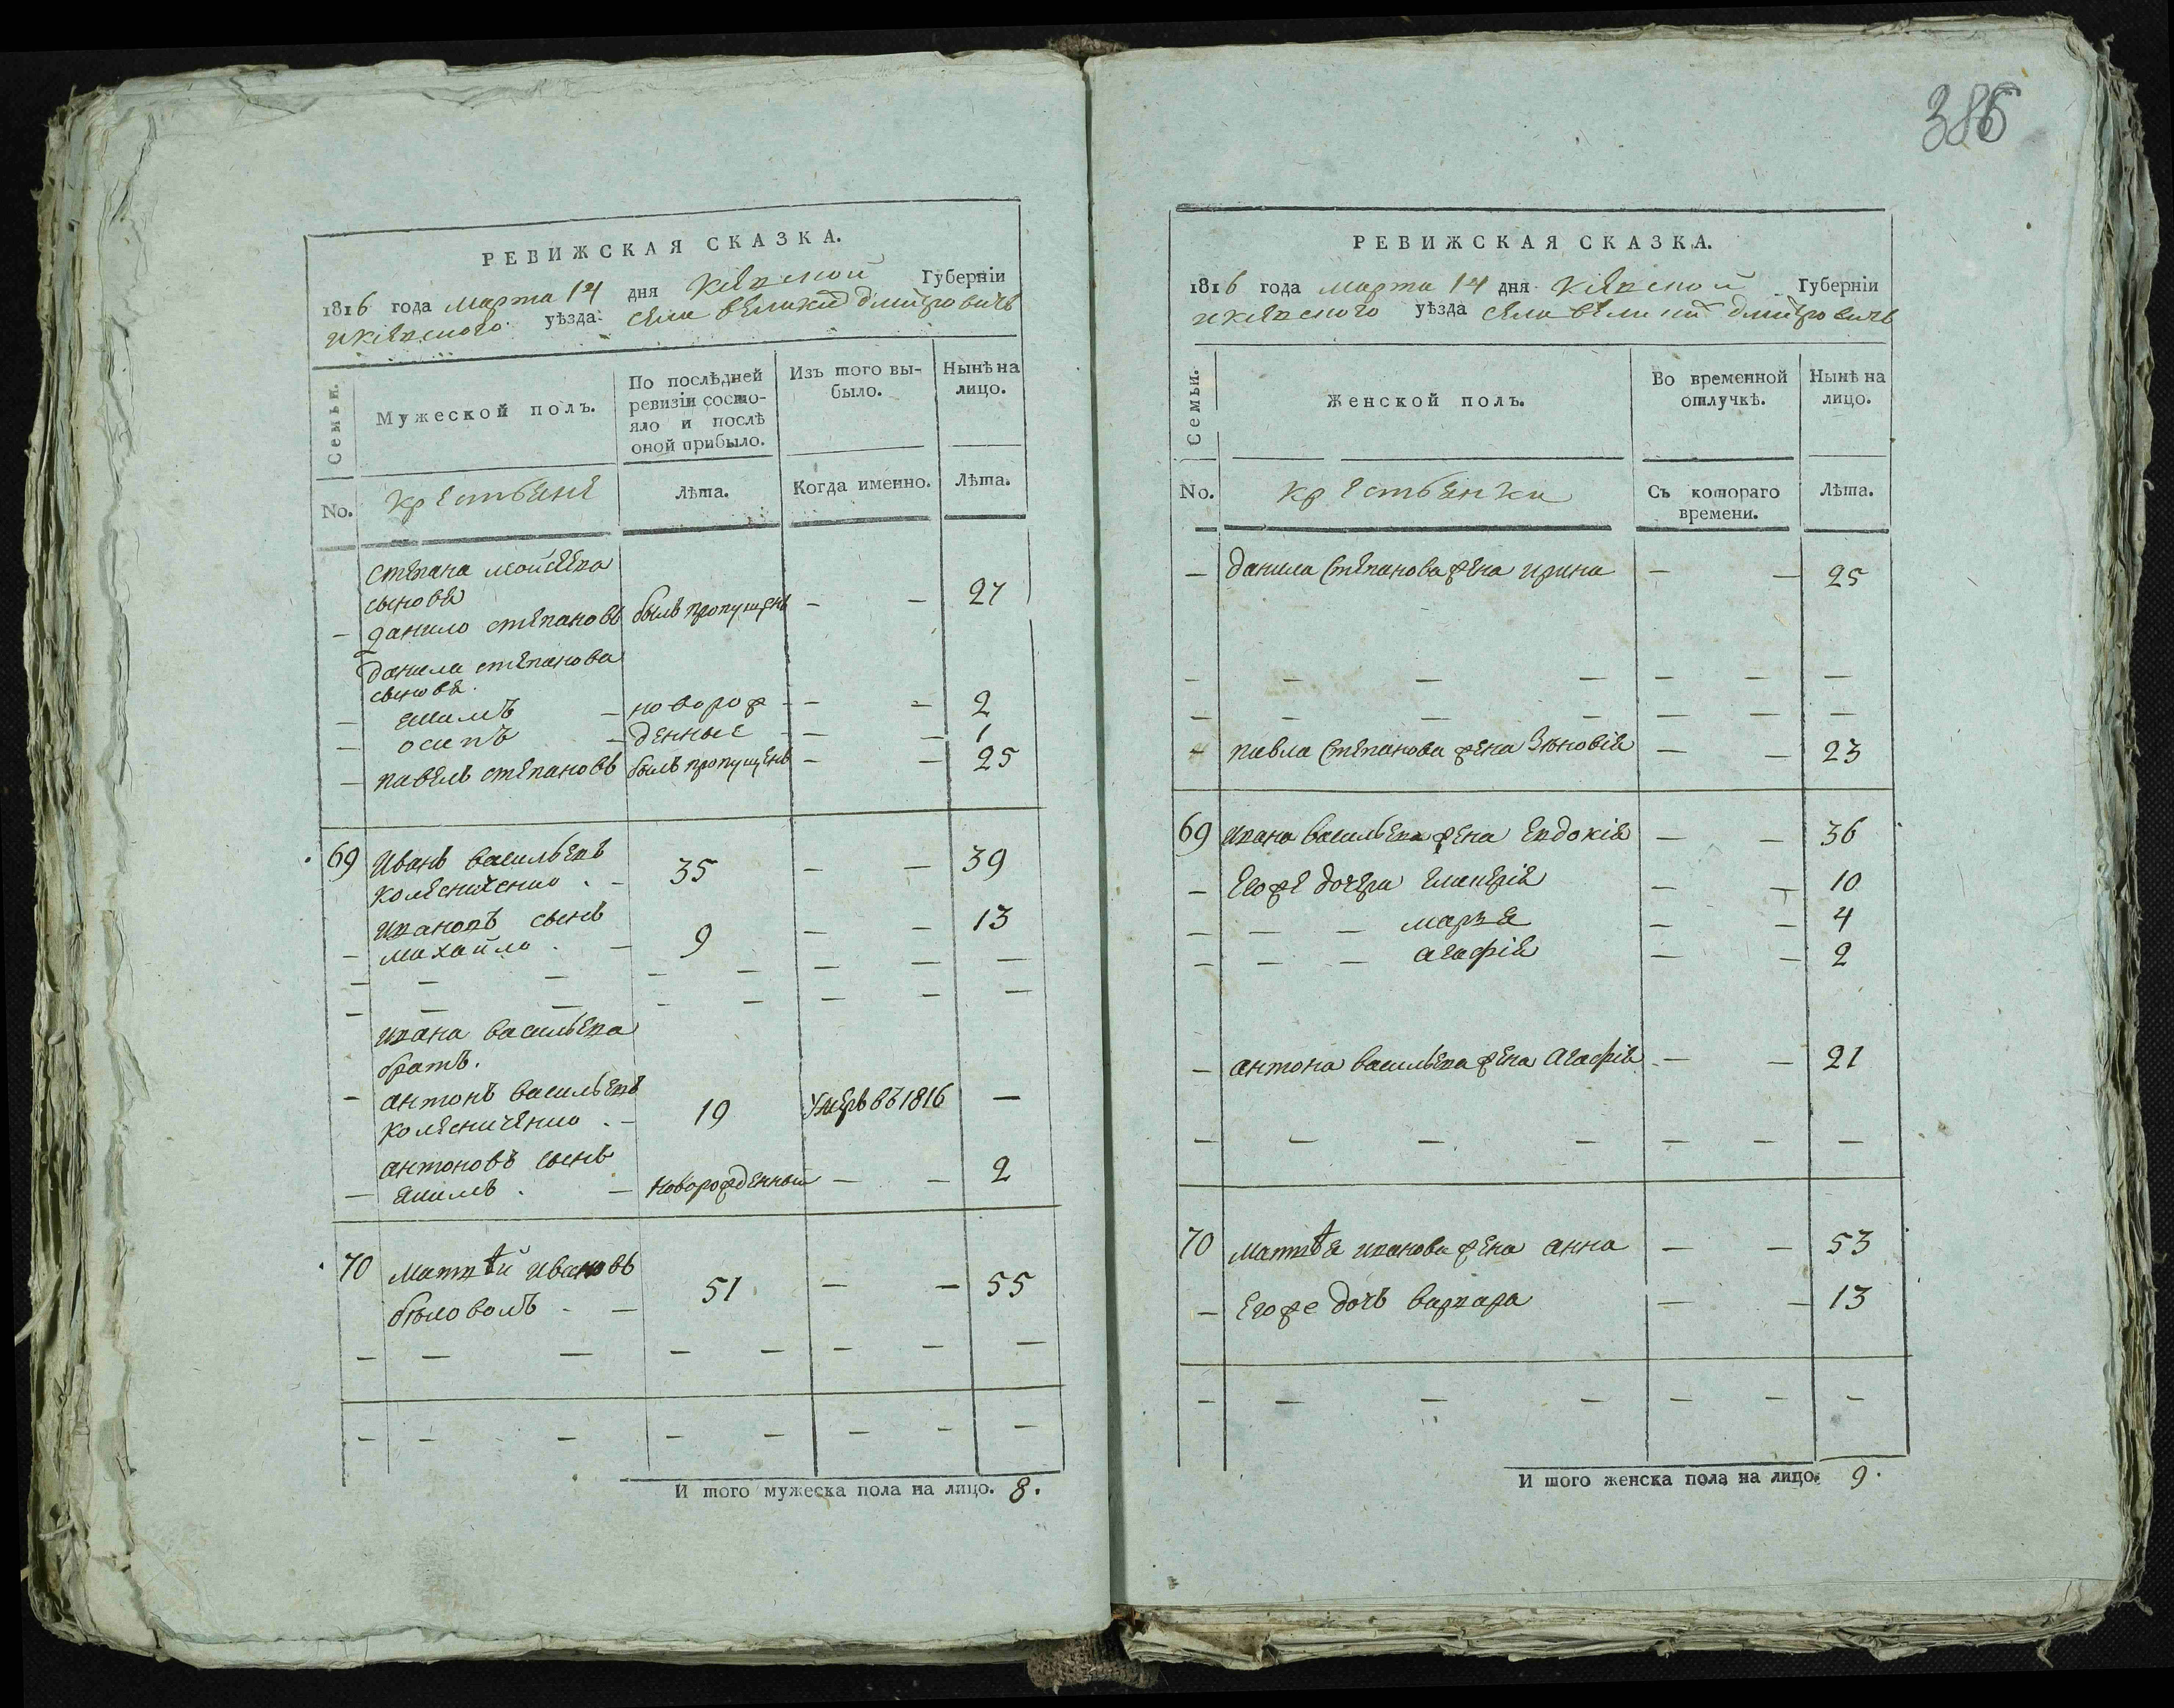 386
РЕВИЖСКАЯ СКАЗКА.
1816 года марта 14 дня Киевской Губерніи
и киевского уѣзда села великих дмитровичь
Семьи.
Мужеской полъ.
По послѣдней ревизіи состо-
яло и послѣ
оной прибыло.
Изъ того вы-
было.
Нынѣ на
лицо.
No.
крестьяне
Лѣта.
Когда именно.
Лѣта.
степана мойсеева
сыновя
— данило степановъ былъ пропущенъ — — 27
данила степанова
сыновя.
— якимъ — новорож — — 2
— осипъ — денные — — 1
— павелъ степановъ былъ пропущенъ — — 25
69 Иванъ васильевъ
колесниченко . — 35 — — 39
ивановъ сынъ
— михайло . — 9 — — 13
— — — — — — — —
— — — — — — — —
ивана васильева
братъ.
— антонъ васильевъ
колесниченко . — 19 умеръ въ 1816 —
антоновъ сынъ
— якимъ . — новорожденный — — 2
70 Матвѣй ивановъ
бѣловолъ - — 51 — — 55
— — — — — — — —
— — — — — — — —
И того мужеска пола на лицо. 8.
РЕВИЖСКАЯ СКАЗКА.
1816 года марта 14 дня Киевской Губерніи
и киевского уѣзда села великих дмитровичь
Семьи.
Женской полъ.
Во временной
отлучкѣ.
Нынѣ на
лицо.
No.
крестьянки
Съ котораго
времени.
Лѣта.
— данила степанова жена ирина — — 25
— — — — — — —
— — — — — — —
павла степанова жена Зѣновія — — 23
69 ивана васильева жена евдокія — — 36
— Его же дочери гликерія — — 10
— — — марья — — 4
— — — агафія — — 2
— антона васильева жена агафія — — 21
— — — — — — —
70 матвѣя иванова жена анна — — 53
— Его же дочь варвара — — 13
— — — — — — —
И того женска пола на лицо. 9.